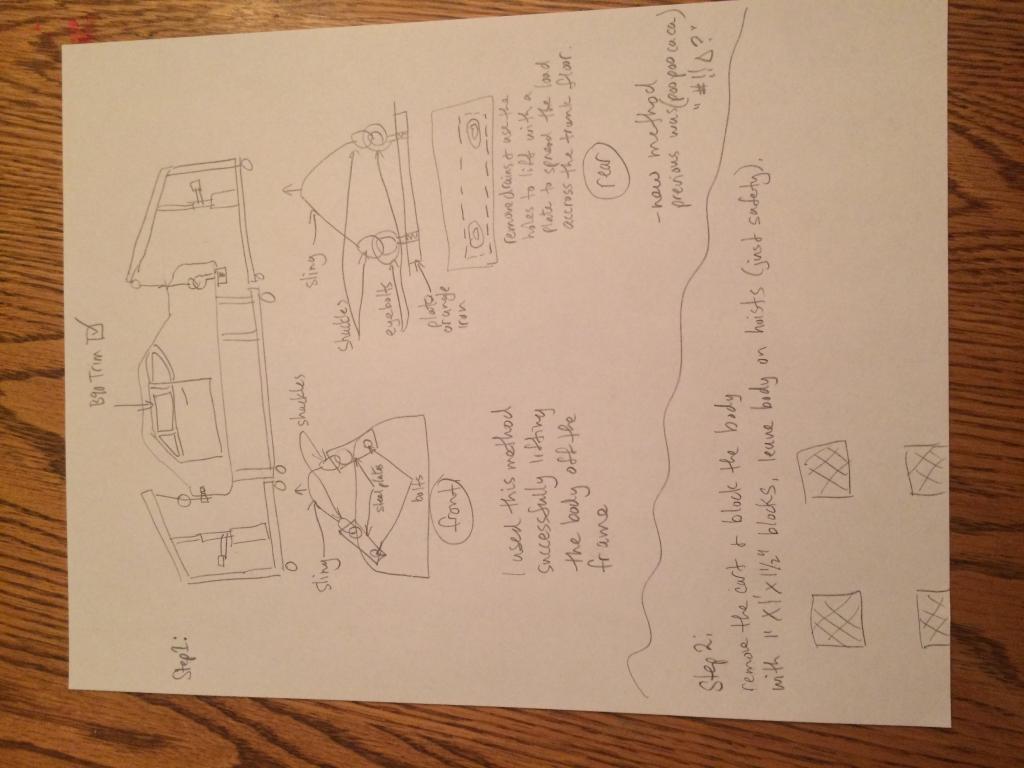 Step 1:
B90 Trim
sling
shackles
steel plates
bolts
front
I used this method
successfully lifting
the body off the
frame
sling
shackles
eyebolts
plate
or angle
iron
remove drains & use the
holes to lift with a
plate to spread the load
accross the trunk floor.
rear
- new method
previous was (poopoo caca)
" #!! Δ?"
Step 2:
remove the cart & block the body
with 1" x 1 x 1 1/2" blocks, leave body on hoists (just safety).